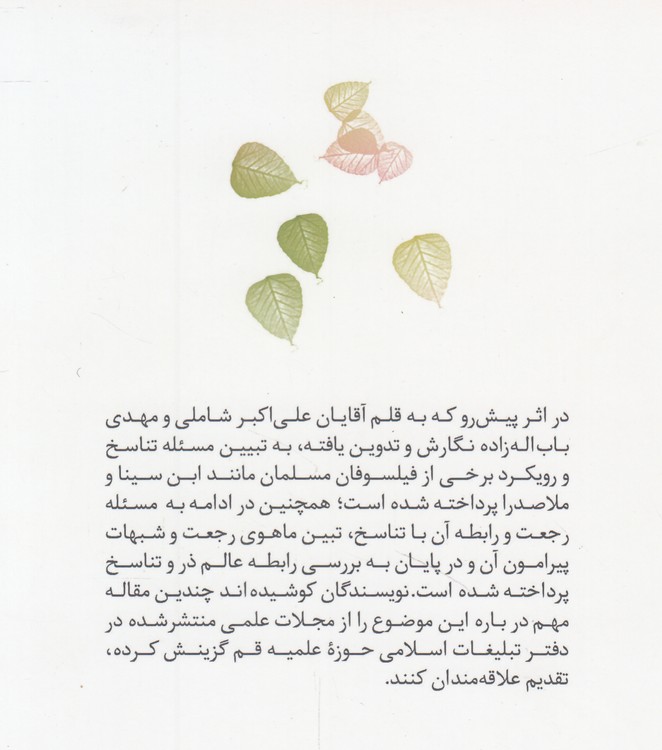 در اثر پیش‌رو که به قلم آقایان علی‌اکبر شاملی و مهدی
باب‌اله‌زاده نگارش و تدوین یافته، به تبیین مسئله تناسخ
و رویکرد برخی از فیلسوفان مسلمان مانند ابن سینا و
ملاصدرا پرداخته شده است؛ همچنین در ادامه به مسئله
رجعت و رابطه آن با تناسخ، تبین ماهوی رجعت و شبهات
پیرامون آن و در پایان به بررسی رابطه عالم ذر و تناسخ
پرداخته شده است.نویسندگان کوشیده‌اند چندین مقاله
مهم در باره این موضوع را از مجلات علمی منتشرشده در
دفتر تبلیغات اسلامی حوزهٔ علمیه قم گزینش کرده،
تقدیم علاقه‌مندان کنند.